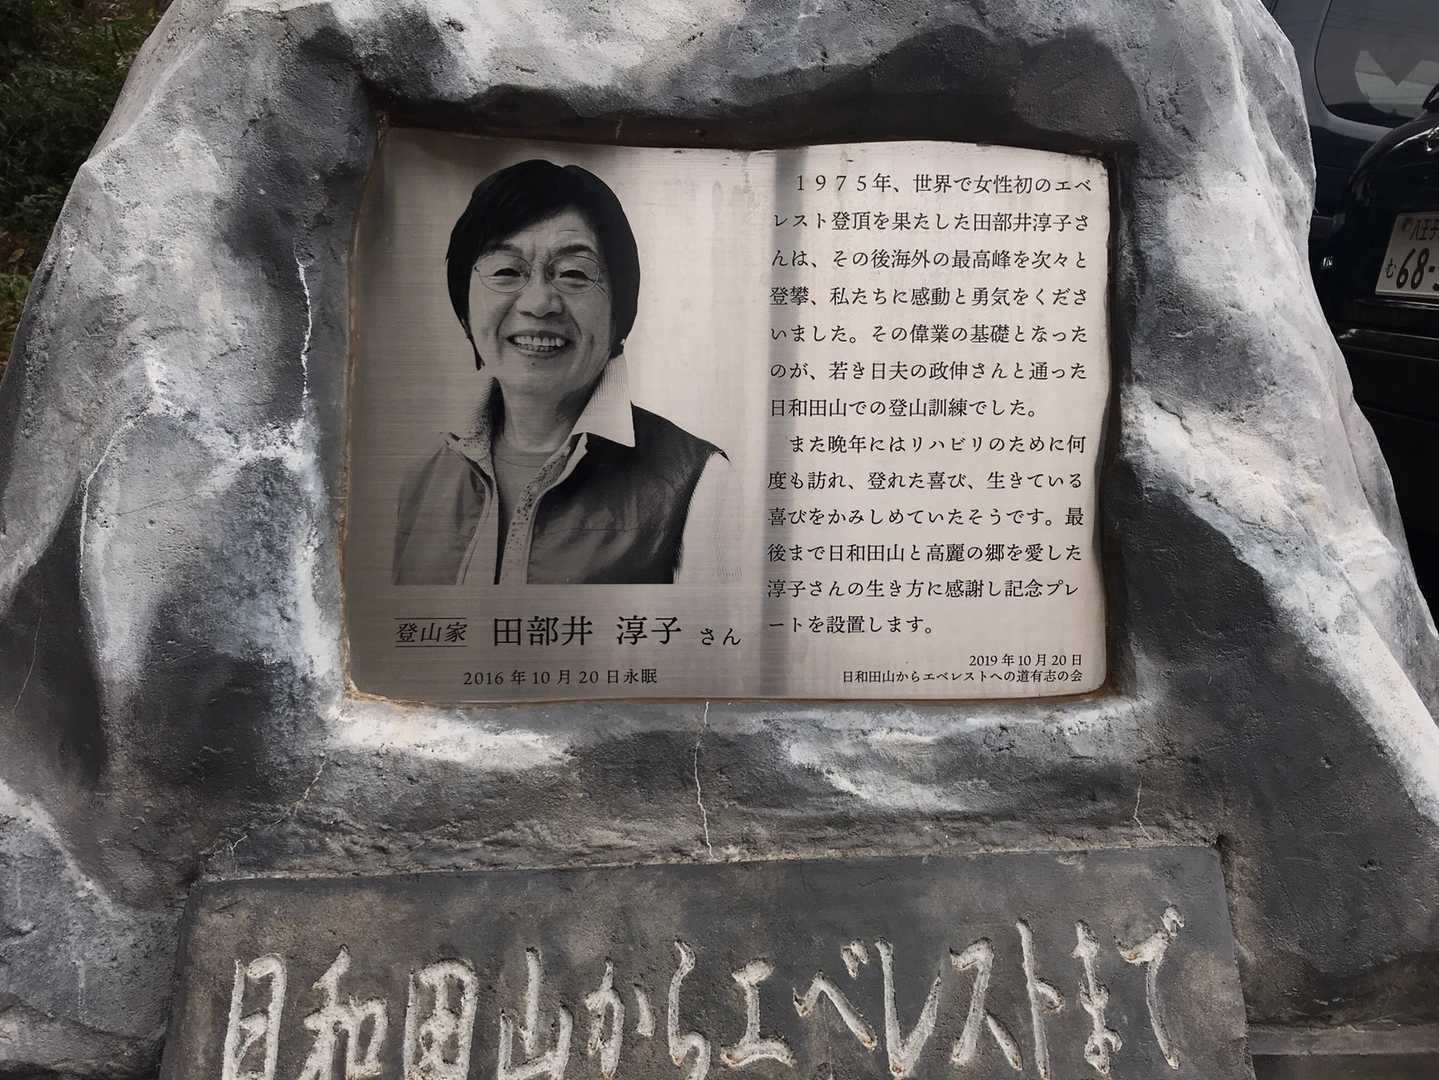 1975年、世界で女性初のエベ
レスト登頂を果たした田部井淳子さ
んは、その後海外の最高峰を次々と
登攀、私たちに感動と勇気をくださ
いました。その偉業の基礎となった
のが、若き日夫の政伸さんと通った
日和田山での登山訓練でした。
また晩年にはリハビリのために何
度も訪れ、登れた喜び、生きている
喜びをかみしめていたそうです。最
後まで日和田山と高麗の郷を愛した
淳子さんの生き方に感謝し記念プレ
ートを設置します。
2019年10月20日
日和田山からエベレストへの道有志の会
登山家 田部井 淳子 さん
2016年10月20日永眠
日和田山からエベレストまで
八王子
む 68-